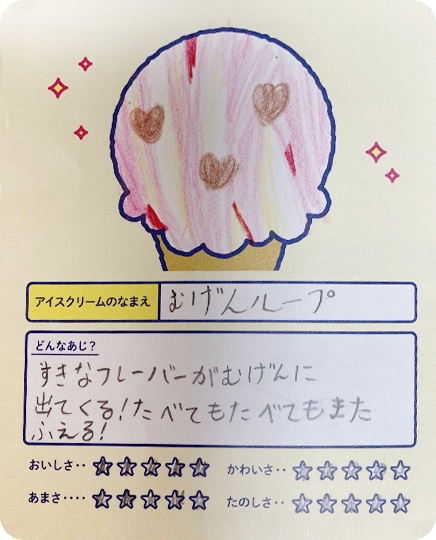 アイスクリームのなまえ むげんループ
どんなあじ？
すきなフレーバーがむげんに
出てくる！たべてもたべてもまた
ふえる！
おいしさ‥ ★★★★★ かわいさ‥ ★★★★★
あまさ‥‥ ★★★★★ たのしさ‥ ★★★★★